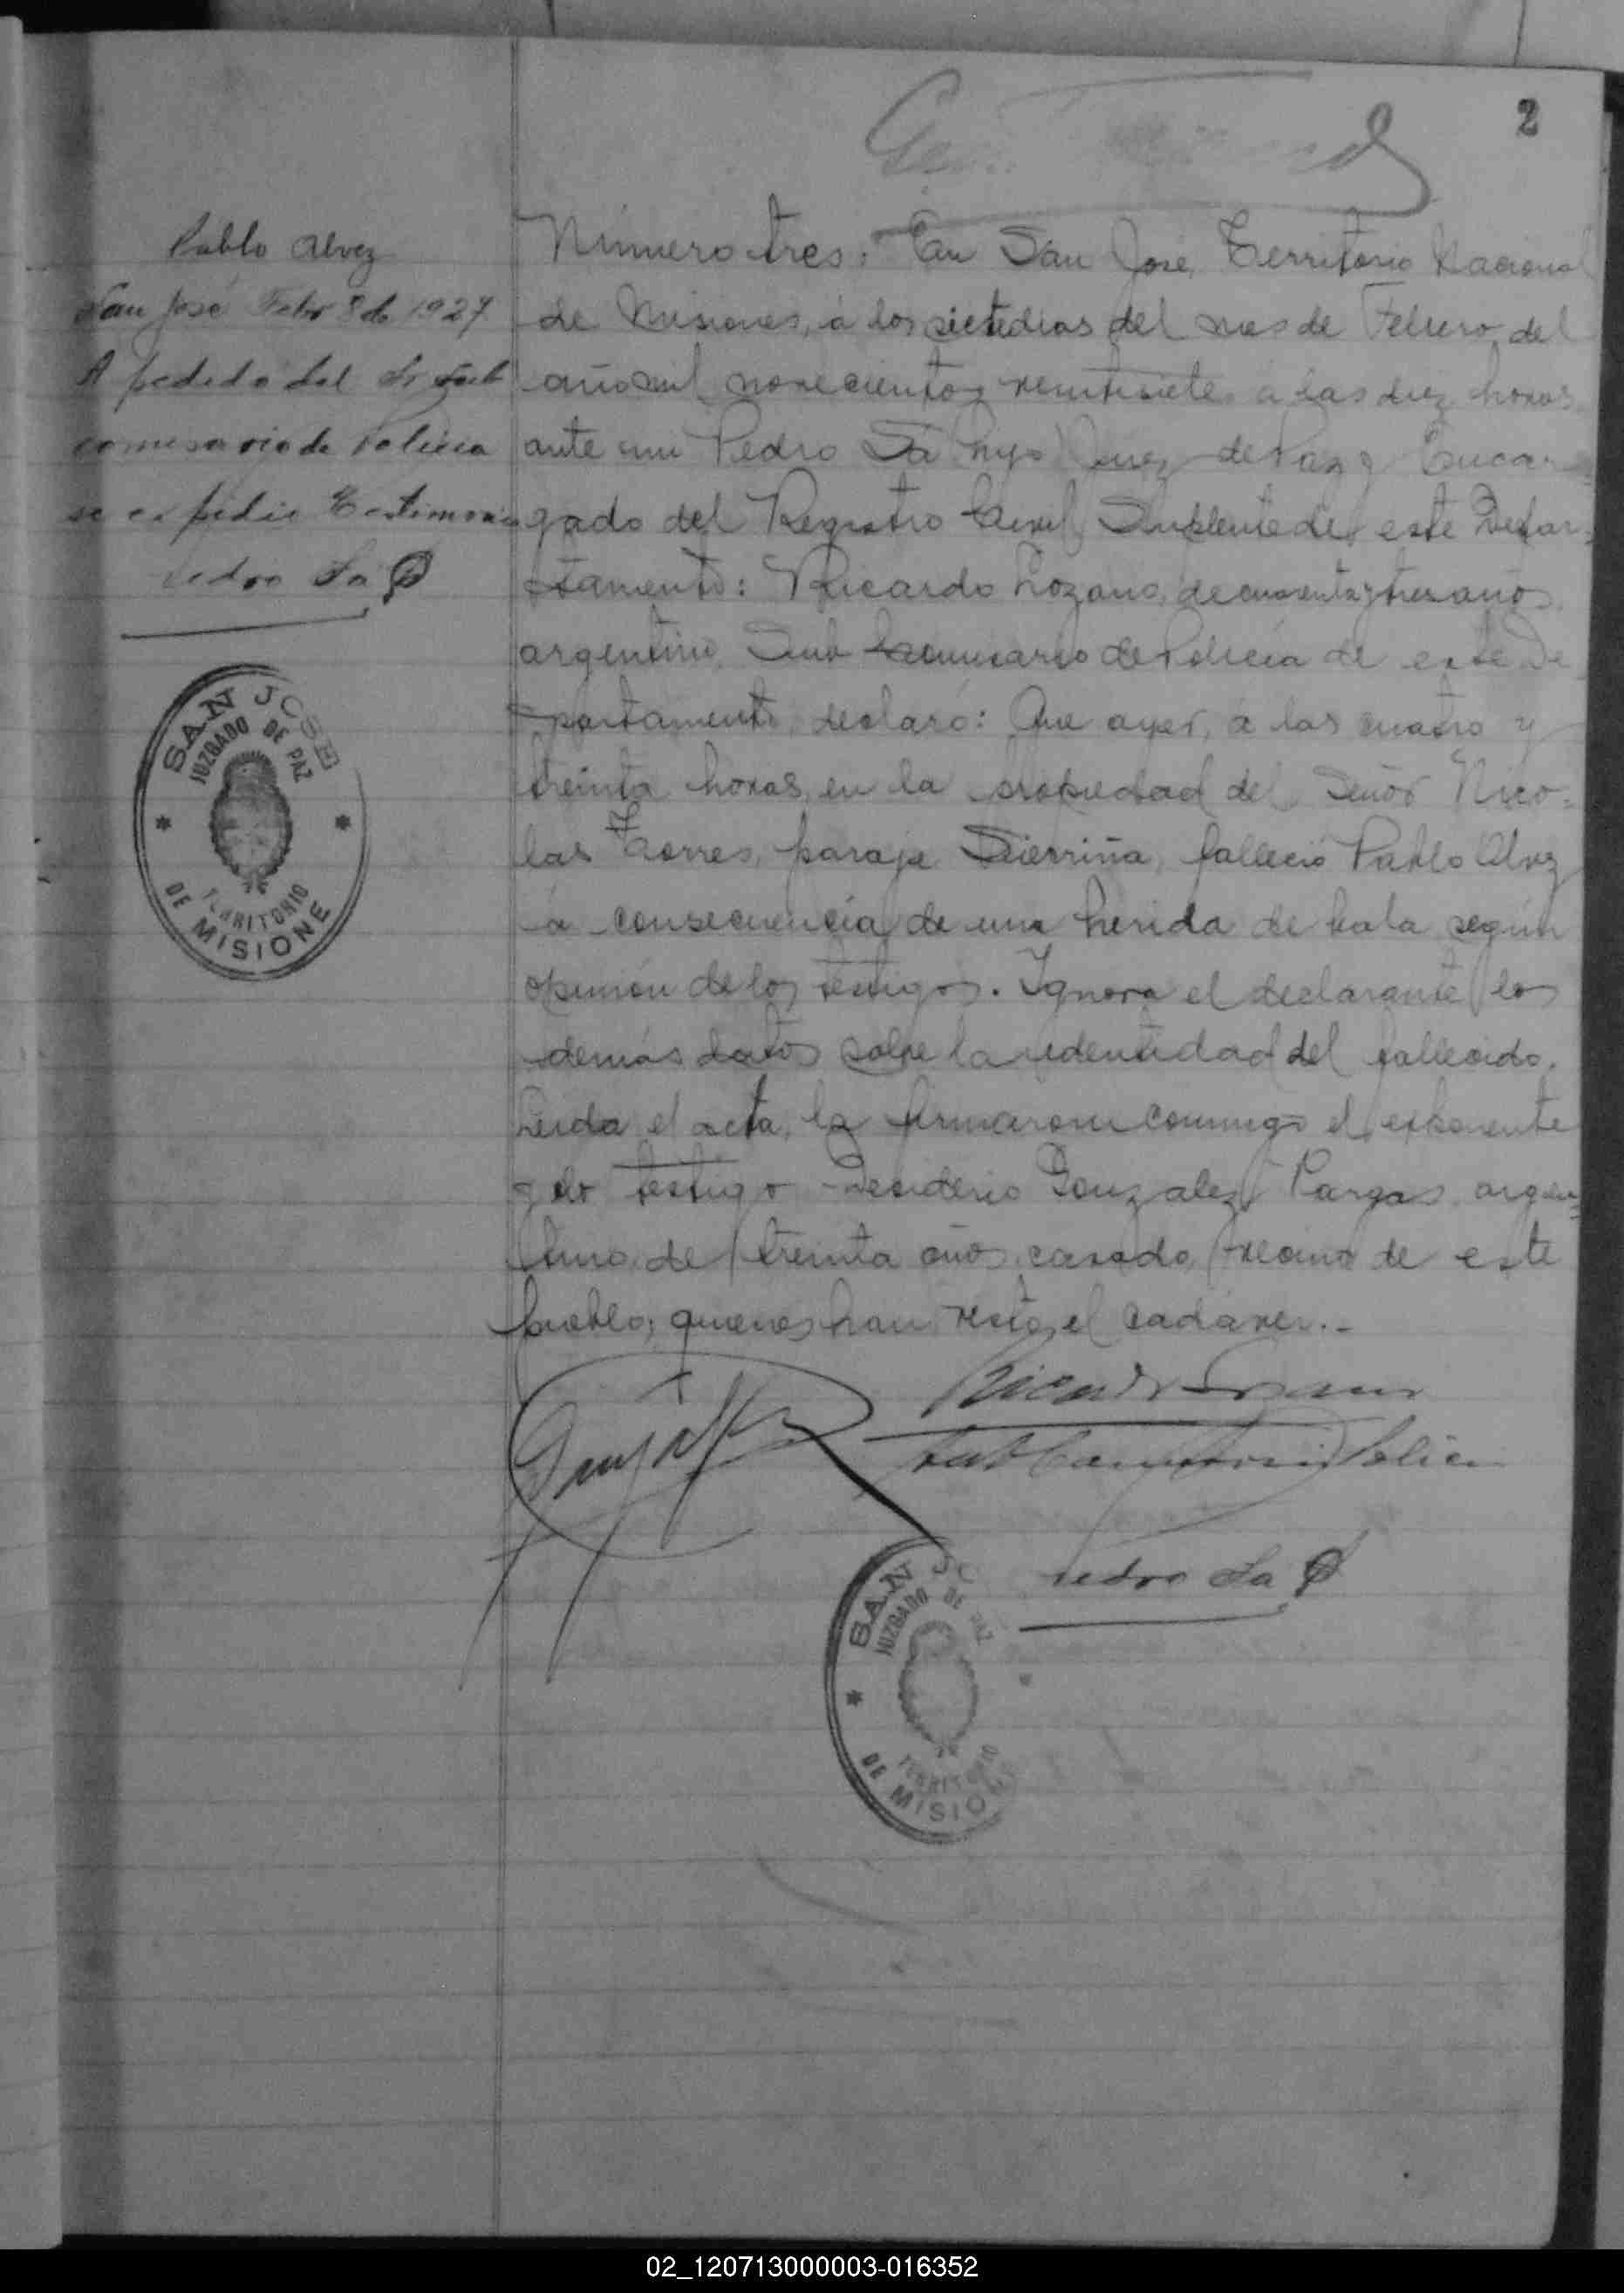 2
Pablo Alvez
San José Febr 8 de 1927
A pedido del Sr Sub
comisario de Policia
se espidio Testimonio
Pedro Sa
SAN JOSE
JUZGADO DE PAZ
TERRITORIO
DE MISIONE
Número tres: En San José, Territorio Nacional
de Misiones, á los siete dias del mes de Febrero del
año mil novecientos veintisiete a las diez horas
ante mi Pedro Sá hijo Juez de Paz y Encar=
gado del Registro Civil Suplente de este Depar=
tamento: Ricardo Lozano, de cuarenta y tres años,
argentino, Sub Comisario de Policia de este De
partamento, declaró: Que ayer, á las cuatro y
treinta horas, en la propiedad del Señor Nico=
las Torres, paraje Sierriña, falleció Pablo Alvez
á consecuencia de una herida de bala según
opinión de los testigos. Ignora el declarante los
demás datos sobre la identidad del fallecido.
Leida el acta, la firmaron conmigo el exponente
y el testigo Desiderio Gonzalez Vargas, argen=
tino, de treinta años, casado, vecino de este
pueblo; quienes han visto el cadáver.-
Ricardo Lozano
Sub Comisario Policia
Pedro Sa
SAN JO
JUZGADO DE PAZ
TERRITORIO
DE MISIONE
02_120713000003-016352